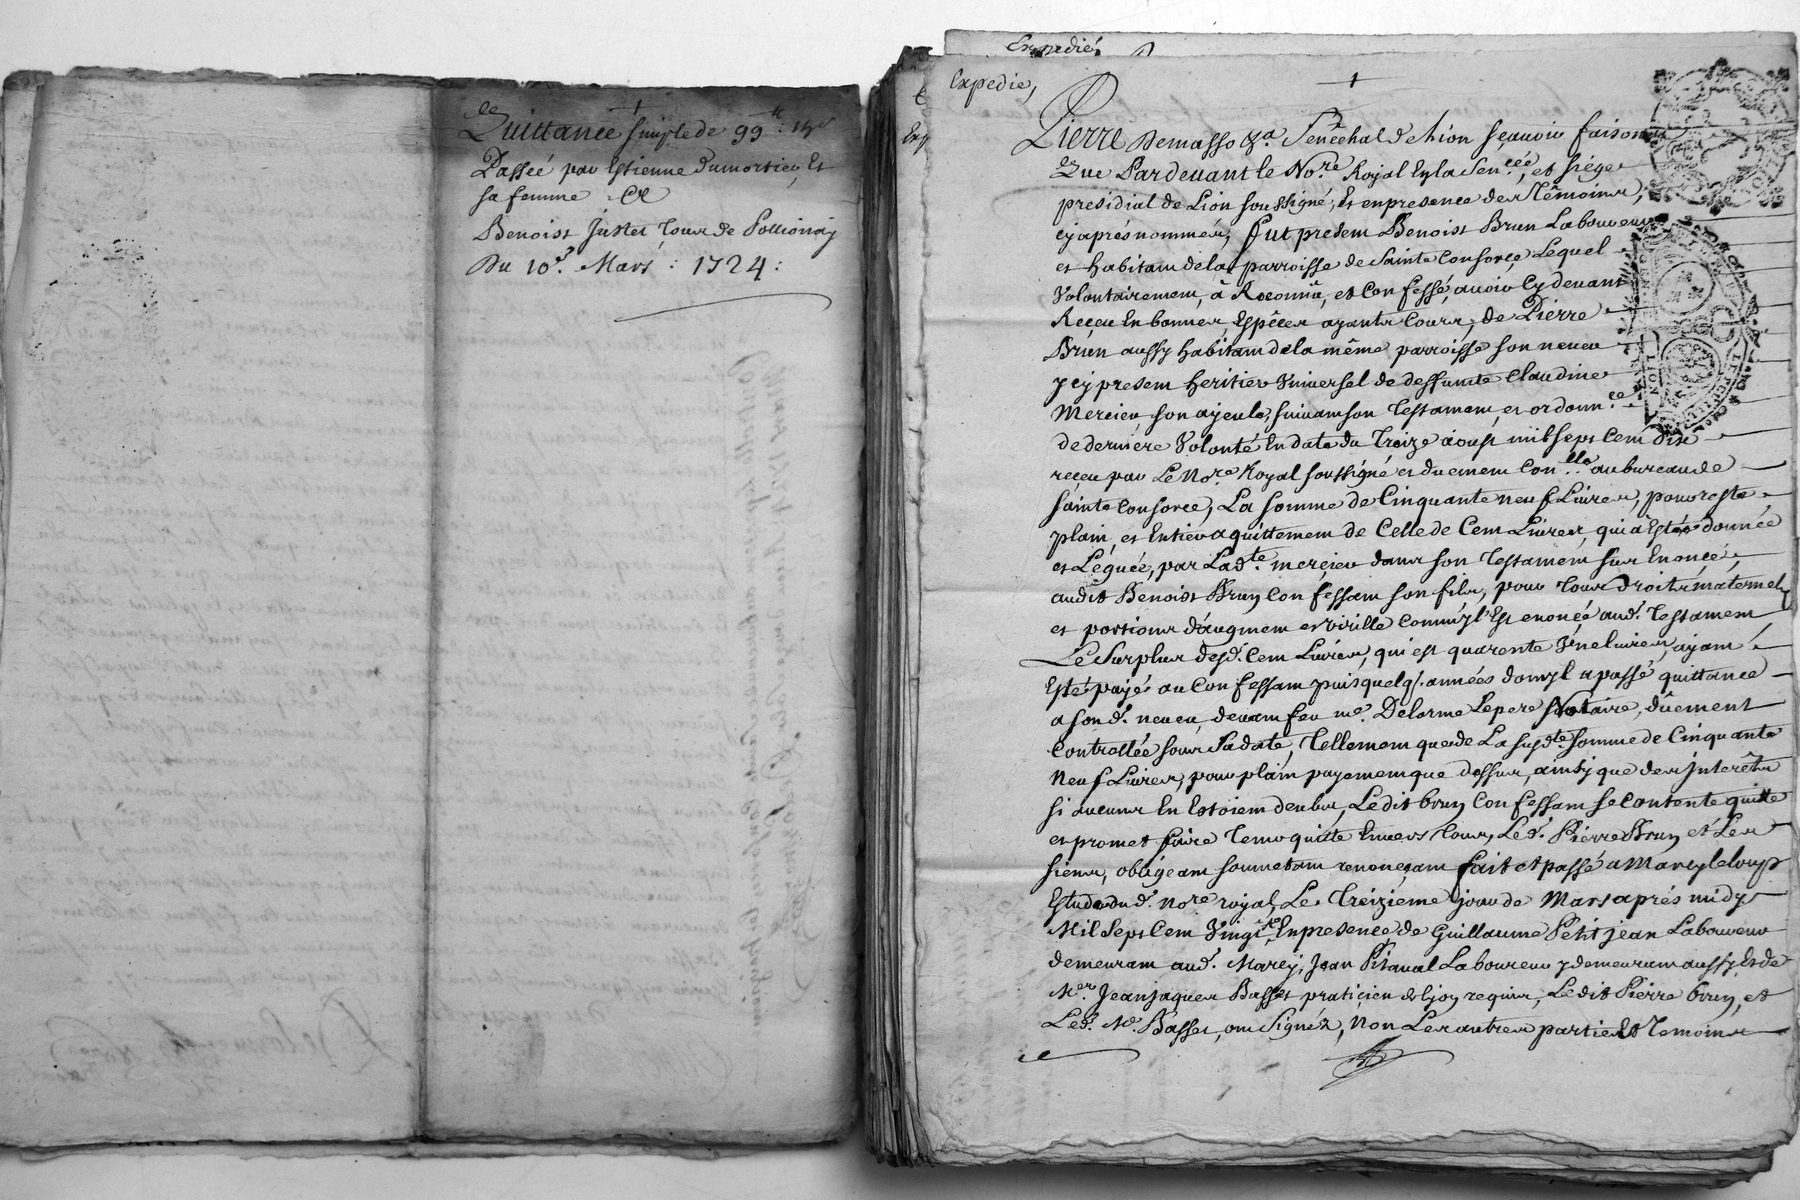 Quittance simple de 99
Passée par Estienne Dumortier, Et
sa femme
Benoist Justet Tour de Pollionay
Du 10e. Mars : 1724 :
Expedié,
Expedie,
Pierre Demasso &a. Senéchal de Lion sçauoir faisons
Que Pardeuant le Nore. Royal En la Sencée, et siége
presidial de Lion soussigné, Et en presence des Témoins,
cy aprés nommés, fut present Benoist Brun Laboureur
et habitant de la parroisse de Sainte Consorce Lequel
Volontairement, a Reconnu, et Confessé, auoir Cy deuant
Reçeu En bonnes, Espéces ayants Cours, de Pierre
Brun aussy habitant de la même parroisse son neueu
y cy present heritier Vniuersel de deffunte Claudine
Mercier son ayeule, suiuant son Testament, et ordonnce.
de derniére Volonté En date du Treize aoust mil sept Cent dix
reçeu par Le Nore. Royal soussigné et duement Conllé. au bureau de
Sainte Consorce, La somme de Cinquante neuf Liures, pour reste,
plain, et Entier aquittement de Celle de Cent Liures, qui a Esté donnée
et Leguée, par Ladte. mercier dans son Testament sus Enoncé,
audit Benoist Brun Confessant son fils, pour Tous droits maternels
et portions d'augment et virille Comm'yl Est enoncé aud. Testament
Le Surplus desd. Cent Liures, qui est quarente Vne liures, ayant
Esté payé au Confessant puis quelqs. années dont yl a passé quittance
a sond. neueu, deuant feu me. Delorme Le pere Notaire, düement
Controllée sous sa date, Tellement que de La susdte. somme de Cinquante
Neuf Liures, pour plain payement que dessus, ainsy que des Interêts
si aucuns En Estoient deubs, Ledit brun Confessant se Contente quitte
et promet faire Tenir quitte Enuers Tous, Led. Pierre Brun et Les
siens, obligeant soumettant renonçant fait et passé a Marcy le loup
Estude dud. nore. royal, Le Treizieme jour de Mars aprés midy
Mil Sept Cent Vingt En presence de Guillaume Petitjean Laboureur
demeurant aud. Marcy, Jean Pitaual Laboureur y demeurant aussy, Et de
Me. Jean Jaques Basset praticien de Lyon requis, Ledit Pierre brun, et
Led. Me. Basset, ont Signéz, Non Les autres parties Et Temoins